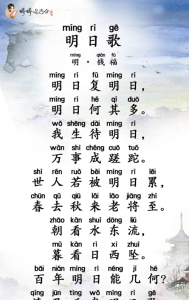 婷婷诗教
míng rì gē
明日歌
míng qián fú
明·钱福
míng rì fù míng rì
明日复明日，
míng rì hé qí duō
明日何其多。
wǒ shēng dài míng rì
我生待明日，
wàn shì chéng cuō tuó
万事成蹉跎。
shì rén ruò bèi míng rì lěi
世人若被明日累，
chūn qù qiū lái lǎo jiāng zhì
春去秋来老将至。
zhāo kàn shuǐ dōng liú
朝看水东流，
mù kàn rì xī zhuì
暮看日西坠。
bǎi nián míng rì néng jǐ hé
百年明日能几何？
qǐng jūn tīng wǒ míng rì gē